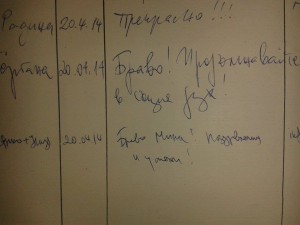 Радина 20.4.14 Прекрасно!!!
20.04.14 Браво! Продължавайте
в същия дух!
20.04.14 Браво Мими! Поздравления
и успехи!